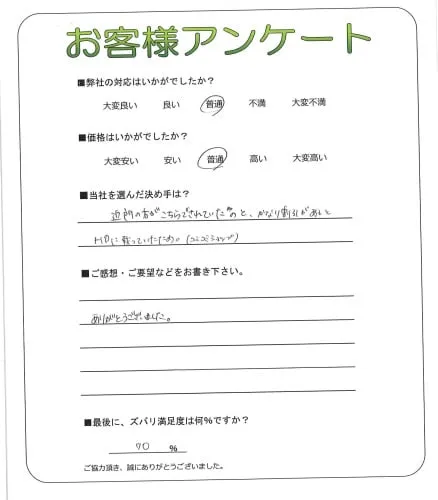 お客様アンケート
■弊社の対応はいかがでしたか?
大変良い 良い 普通 不満 大変不満
■価格はいかがでしたか?
大変安い 安い 普通 高い 大変高い
■当社を選んだ決め手は?
近所の方がこちらでされていたのと、かなり割引があると
HPに載っていたため(コミコミショップ)
■ご感想・ご要望などをお書き下さい。
ありがとうございました。
■最後に、ズバリ満足度は何%ですか?
70 %
ご協力頂き、誠にありがとうございました。